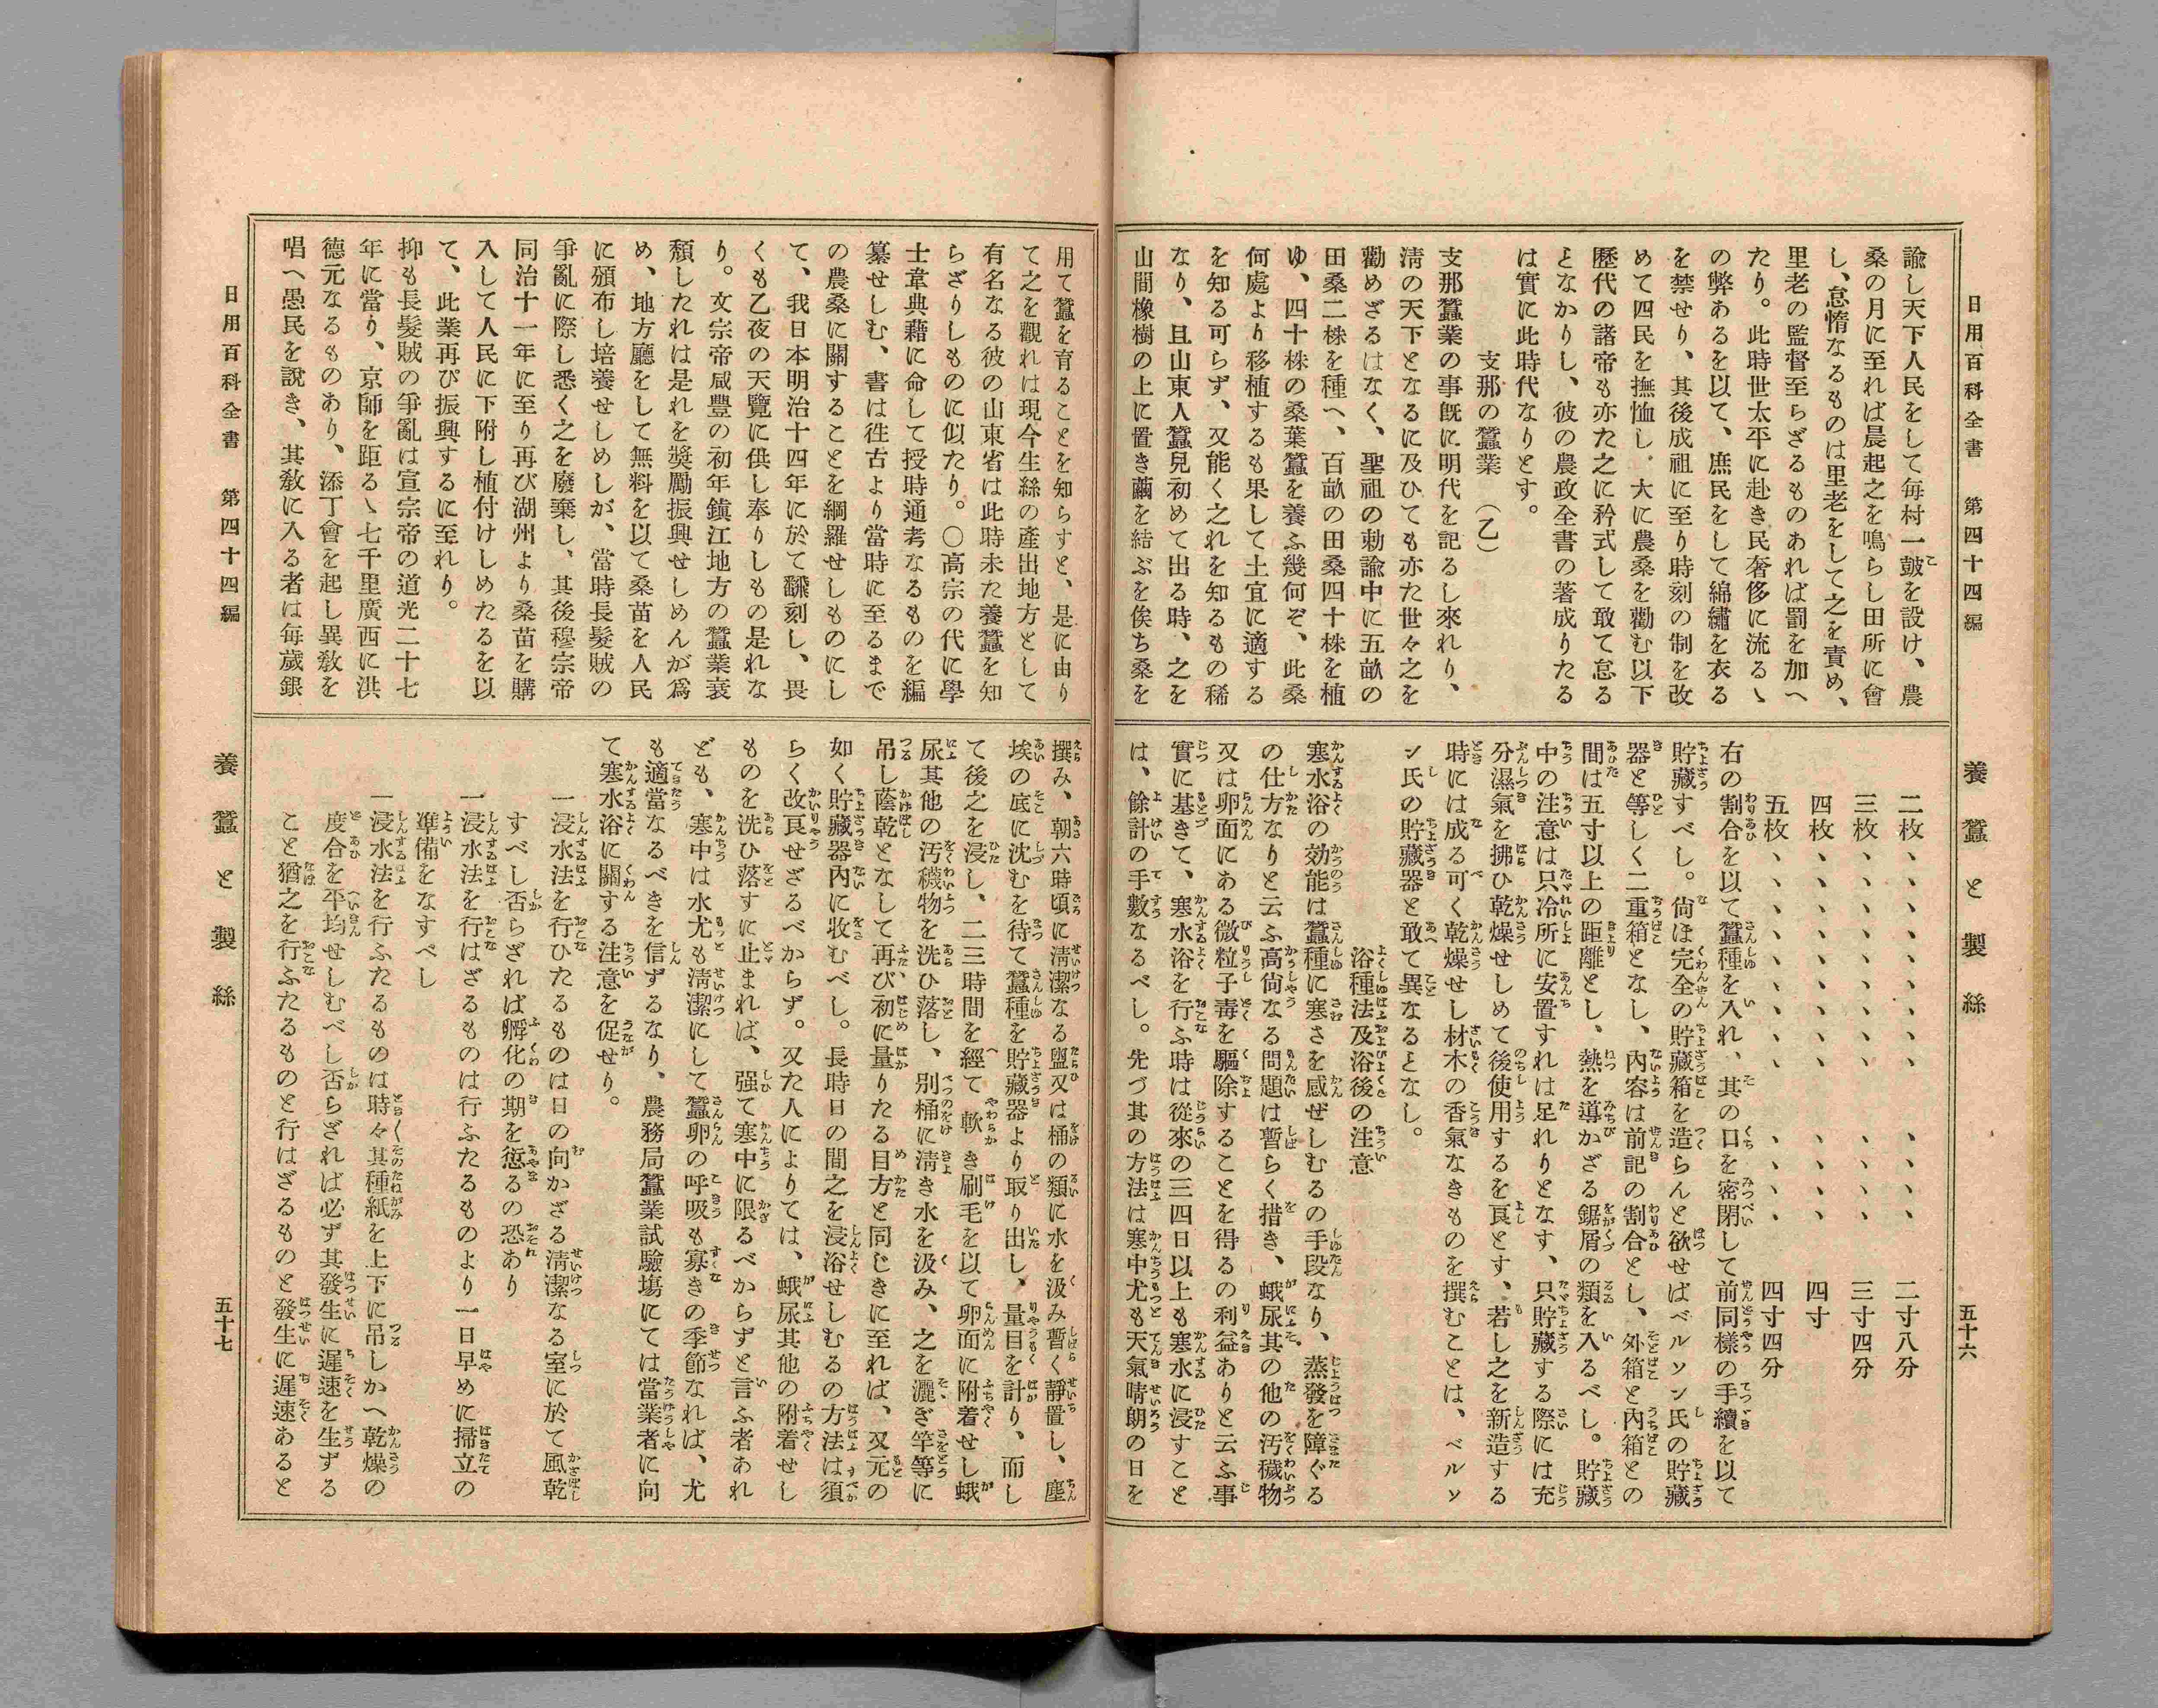 日用百科全書　第四十四編
養蠶と製絲
五十六
諭し天下人民をして毎村一皷を設け、農
桑の月に至れば晨起之を鳴らし田所に會
し、怠惰なるものは里老をして之を責め、
里老の監督至らざるものあれば罰を加へ
たり。此時世太平に赴き民奢侈に流るゝ
の弊あるを以て、庶民をして綿繡を衣る
を禁せり、其後成祖に至り時刻の制を改
めて四民を撫恤し、大に農桑を勸む以下
歴代の諸帝も亦た之に矜式して敢て怠る
となかりし、彼の農政全書の著成りたる
は實に此時代なりとす。
支那の蠶業（乙）
支那蠶業の事既に明代を記るし來れり、
淸の天下となるに及ひても亦た世々之を
勸めざるはなく、聖祖の勅諭中に五畝の
田桑二株を種へ、百畝の田桑四十株を植
ゆ、四十株の桑葉蠶を養ふ幾何ぞ、此桑
何處より移植するも果して土宜に適する
を知る可らず、又能く之れを知るもの稀
なり、且山東人蠶兒初めて出る時、之を
山間橡樹の上に置き繭を結ぶを俟ち桑を
二枚、、、、、、、、、、、、二寸八分
三枚、、、、、、、、、、、、三寸四分
四枚、、、、、、、、、、、、四寸
五枚、、、、、、、、、、、、四寸四分
右の割合を以て蠶種を入れ、其の口を密閉して前同樣の手續を以て
貯藏すべし。尙ほ完全の貯藏箱を造らんと欲せばベルソン氏の貯藏
器と等しく二重箱となし、内容は前記の割合とし、外箱と内箱との
間は五寸以上の距離とし、熱を導かざる鋸屑の類を入るべし。貯藏
中の注意は只冷所に安置すれは足れりとなす、只貯藏する際には充
分濕氣を拂ひ乾燥せしめて後使用するを良とす、若し之を新造する
時には成る可く乾燥せし材木の香氣なきものを撰むことは、ベルソ
ン氏の貯藏器と敢て異なるとなし。
浴種法及浴後の注意
寒水浴の効能は蠶種に寒さを感ぜしむるの手段なり、蒸發を障ぐる
の仕方なりと云ふ高尙なる問題は暫らく措き、蛾尿其の他の汚穢物
又は卵面にある微粒子毒を驅除することを得るの利益ありと云ふ事
實に基きて、寒水浴を行ふ時は從來の三四日以上も寒水に浸すこと
は、餘計の手數なるべし。先づ其の方法は寒中尤も天氣晴朗の日を
日用百科全書　第四十四編
養蠶と製絲
五十七
用て蠶を育ることを知らすと、是に由り
て之を觀れは現今生絲の產出地方として
有名なる彼の山東省は此時未た養蠶を知
らざりしものに似たり。〇高宗の代に學
士韋典藉に命して授時通考なるものを編
纂せしむ、書は徃古より當時に至るまで
の農桑に關することを綱羅せしものにし
て、我日本明治十四年に於て飜刻し、畏
くも乙夜の天覽に供し奉りしもの是れな
り。文宗帝咸豐の初年鎭江地方の蠶業衰
頽したれは是れを奬勵振興せしめんが爲
め、地方廳をして無料を以て桑苗を人民
に頒布し培養せしめしが、當時長髮賊の
爭亂に際し悉く之を廢棄し、其後穆宗帝
同治十一年に至り再び湖州より桑苗を購
入して人民に下附し植付けしめたるを以
て、此業再び振興するに至れり。
抑も長髮賊の爭亂は宣宗帝の道光二十七
年に當り、京師を距るゝ七千里廣西に洪
德元なるものあり、添丁會を起し異敎を
唱へ愚民を說き、其敎に入る者は毎歲銀
撰み、朝六時頃に淸潔なる盥又は桶の類に水を汲み暫く靜置し、塵
埃の底に沈むを待て蠶種を貯藏器より取り出し、量目を計り、而し
て後之を浸し、二三時間を經て軟き刷毛を以て卵面に附着せし蛾
尿其他の汚穢物を洗ひ落し、別桶に淸き水を汲み、之を灑ぎ竿等に
吊し蔭乾となして再び初に量りたる目方と同じきに至れば、又元の
如く貯藏器内に收むべし。長時日の間之を浸浴せしむるの方法は須
らく改良せざるべからず。又た人によりては、蛾尿其他の附着せし
ものを洗ひ落すに止まれば、强て寒中に限るべからずと言ふ者あれ
ども、寒中は水尤も淸潔にして蠶卵の呼吸も寡きの季節なれば、尤
も適當なるべきを信ずるなり、農務局蠶業試驗塲にては當業者に向
て寒水浴に關する注意を促せり。
一浸水法を行ひたるものは日の向かざる淸潔なる室に於て風乾
すべし否らざれば孵化の期を愆るの恐あり
一浸水法を行はざるものは行ふたるものより一日早めに掃立の
準備をなすべし
一浸水法を行ふたるものは時々其種紙を上下に吊しかへ乾燥の
度合を平均せしむべし否らざれば必ず其發生に遲速を生ずる
こと猶之を行ふたるものと行はざるものと發生に遲速あると